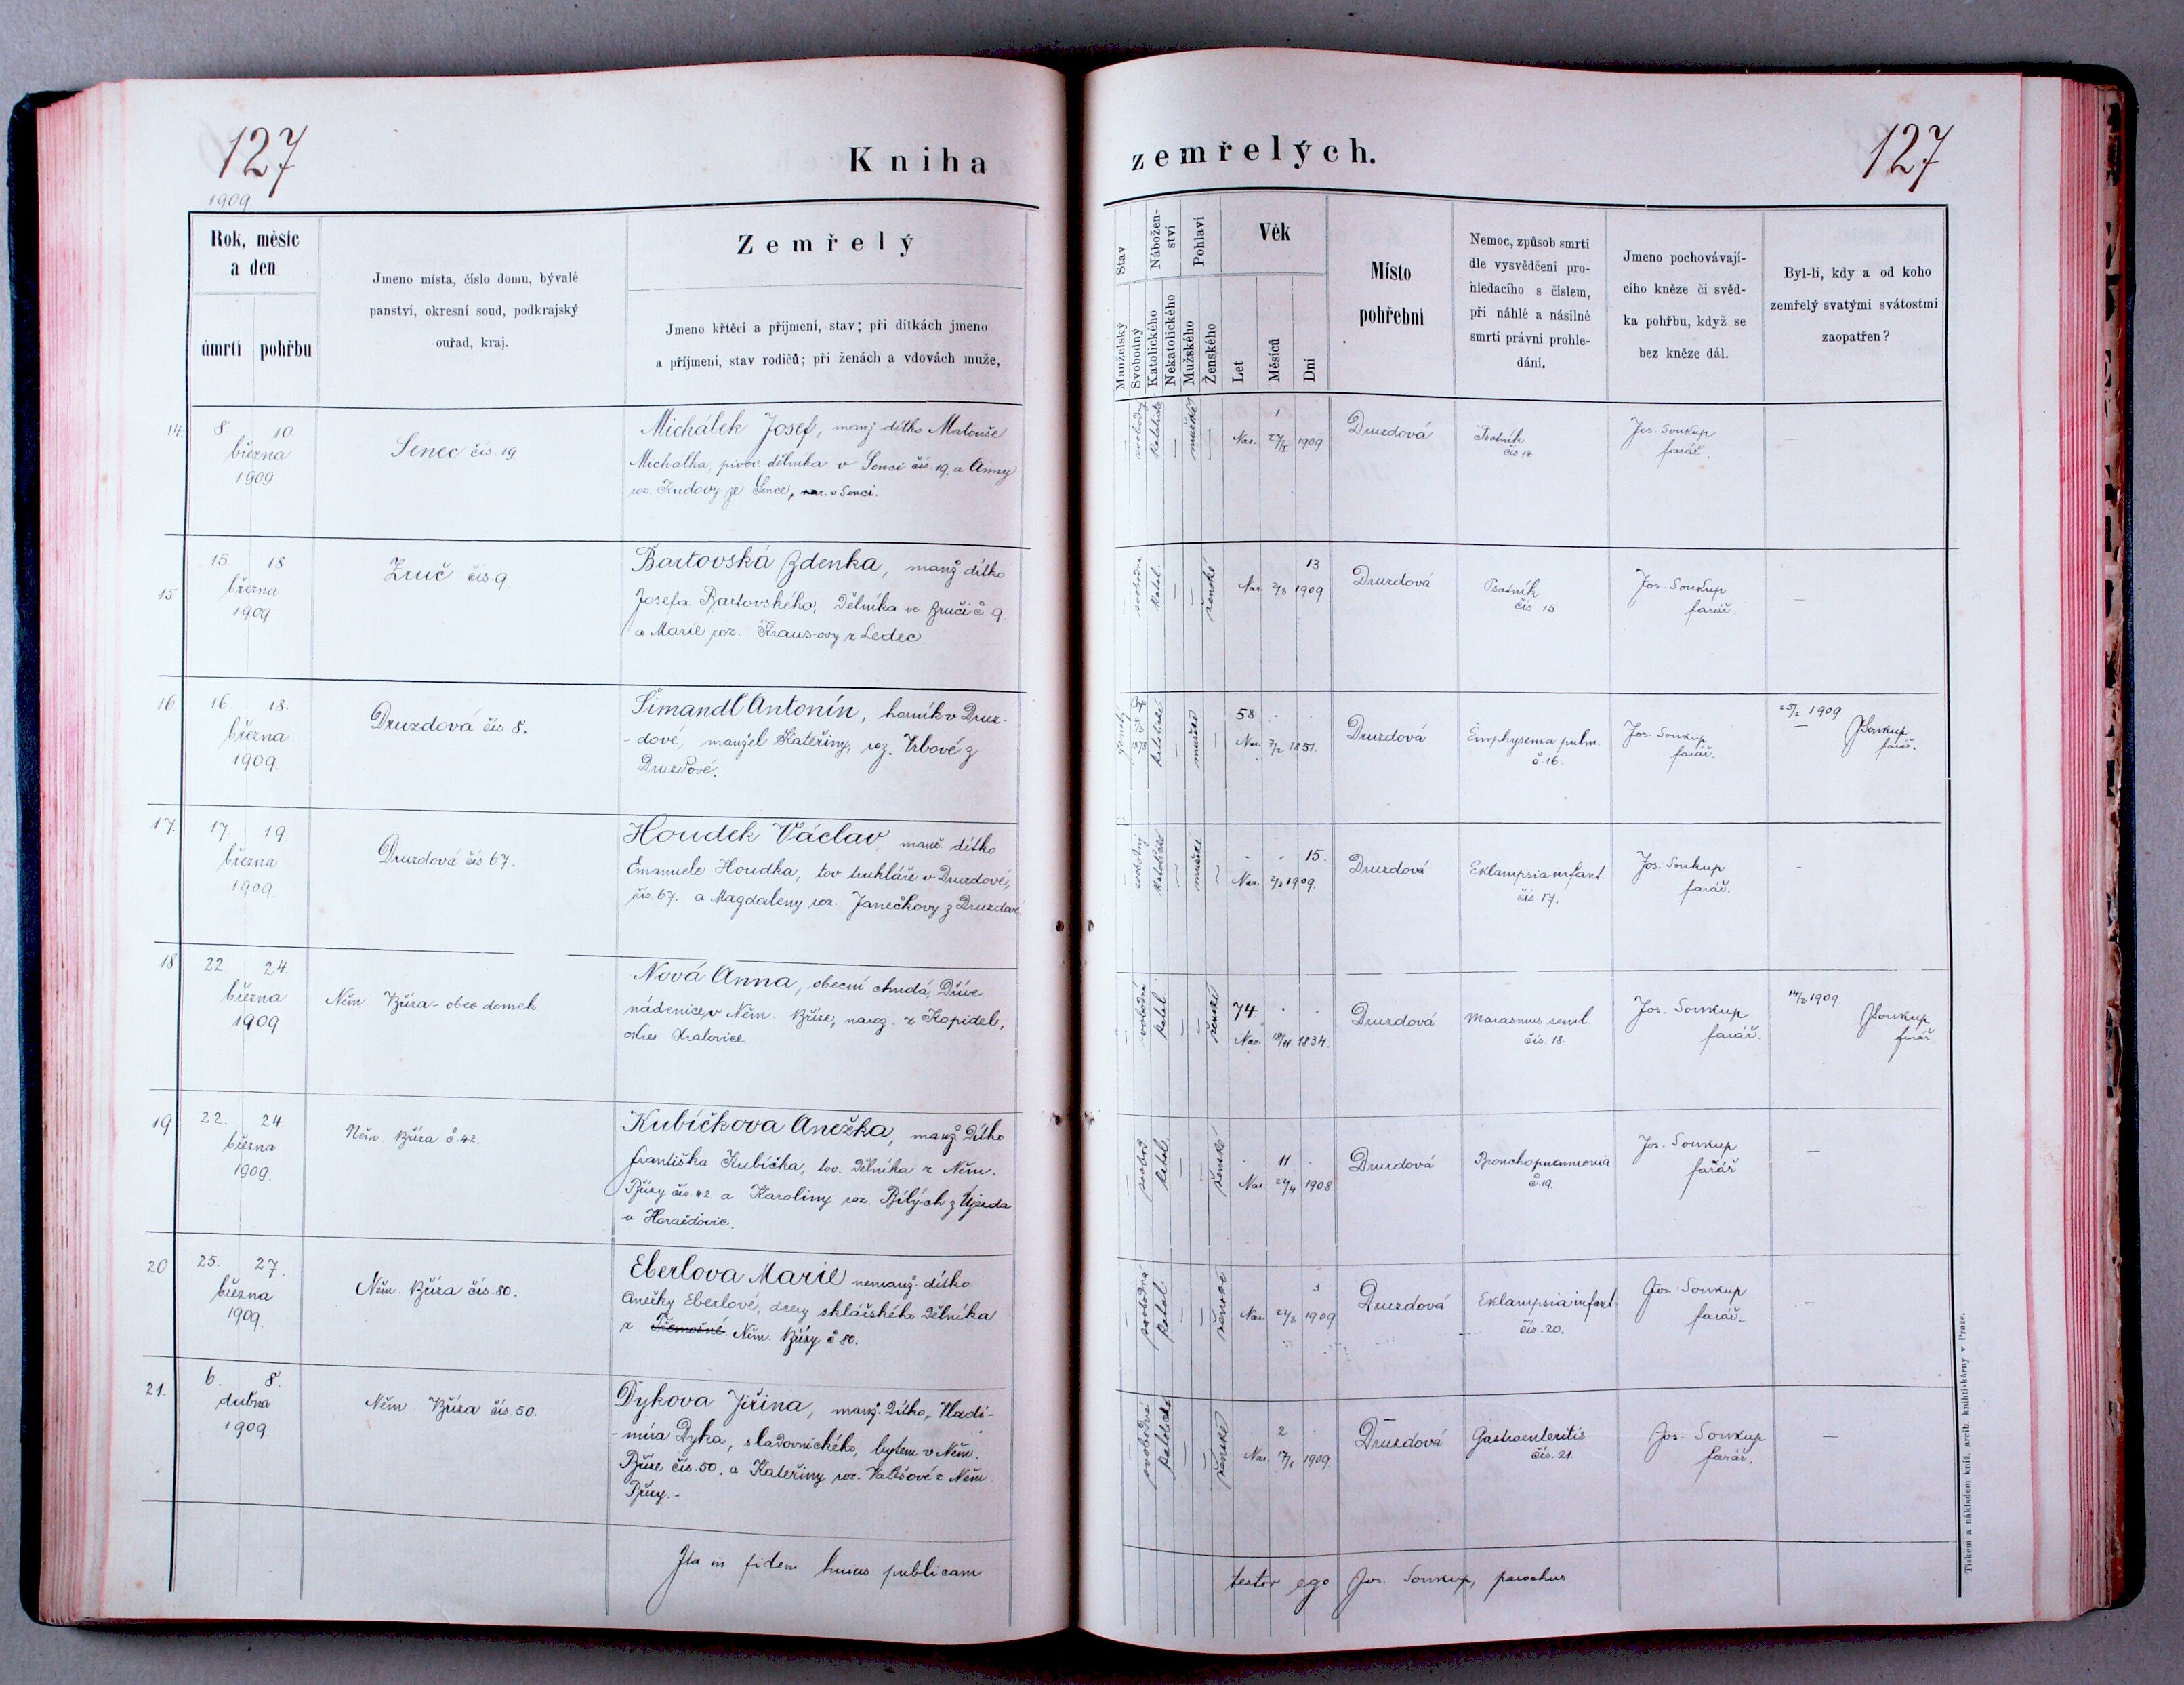 127
1909
Kniha
zemřelých.
127
Rok, měsíc
a den
úmrtí
pohřbu
Jmeno místa, číslo domu, bývalé
panství, okresní soud, podkrajský
ouřad, kraj.
Zemřelý
Jmeno křtěcí a příjmení, stav; při dítkách jmeno
a příjmení, stav rodičů; při ženách a vdovách muže,
Stav
Manželský
Svobodný
Nábožen-
ství
Katolického
Nekatolického
Pohlaví
Mužského
Ženského
Věk
Let
Měsíců
Dní
Místo
pohřební
Nemoc, způsob smrti
dle vysvědčení pro-
hledacího s číslem,
při náhlé a násilné
smrti právní prohle-
dání.
Jmeno pochovávají-
cího kněze či svěd-
ka pohřbu, když se
bez kněze dál.
Byl-li, kdy a od koho
zemřelý svatými svátostmi
zaopatřen?
14.
8 10.
března
1909
Senec čís. 19.
Michálek Josef, manž. dítko Matouše
Michálka, pivov. dělníka v Senci čís. 19. a Anny
roz. Kudovy ze Sence, nar. v Senci.
svobodný
mužské
1
Nar. 1909
Druzdová
Psotník
čís 14
Jos. Soukup
farář.
—
15
15 18
března
1909
Zruč čís. 9
Bartovská Zdenka, manž. dítko
Josefa Bartovského, dělníka ve Zruči č 9.
a Marie roz. Kraus-ovy z Ledec.
svobodná
katol.
ženské
13
Nar. 2/3 1909
Druzdová
Psotník
čís 15
Jos. Soukup
farář.
—
16
16. 18.
března
1909.
Druzdová čís. 8.
Šimandl Antonín, horník v Druz-
-dové, manžel Kateřiny, roz. Vrbové z
Druzdové.
ženatý
katolické
mužské
58
Nar. 7/2 1851.
Druzdová
Emphysema pulm.
č. 16.
Jos. Soukup
farář.
25/2 1909.
JSoukup
farář.
17.
17. 19.
března
1909
Druzdová čís. 67.
Houdek Václav, manž. dítko
Emanuele Houdka, tov truhláře v Druzdové,
čís. 67. a Magdaleny roz. Janečkovy z Druzdové.
svobodný
katolické
mužské
15.
Nar. 2/3 1909.
Druzdová
Eklampsia infant.
čís. 17.
Jos. Soukup
farář.
-
18
22. 24.
března
1909
Něm. Bříza - obec domek
Nová Anna, obecní chudá, dříve
nádenice v Něm. Bříze, naroz. z Kopidel,
okres Kralovice.
svobodná
katol.
ženské
74
Nar. 18/11 1834.
Druzdová
Marasmus senil.
čís. 18.
Jos. Soukup
farář.
14/2 1909
JSoukup
farář.
19
22. 24.
března
1909.
Něm. Bříza č. 42.
Kubíčkova Anežka, manž. dítko
Františka Kubíčka, tov. dělníka z Něm.
Břízy čís. 42. a Karoliny roz. Bílých z Újezda
u Horažďovic.
svobod.
katol.
ženské
11
Nar. 22/4 1908
Druzdová
Bronchopneumonia
č. 19.
Jos. Soukup
farář
—
20
25. 27.
března
1909.
Něm. Bříza čís. 80.
Eberlova Marie nemanž. dítko
Anežky Eberlové, dcery sklářského dělníka
z Třemošné. Něm. Břízy č 80.
svobodná
katol.
ženské
3
Nar. 22/3 1909
Druzdová
Eklampsia infant.
čís. 20.
Jos. Soukup
farář.
—
21.
6. 8.
dubna
1909.
Něm. Bříza čís. 50.
Dykova Jiřina, manž. dítko, Vladi-
-míra Dyka, sladovnického, bytem v Něm.
Bříze čís. 50. a Kateřiny roz. Valešové z Něm.
Břízy. -
svobodná
katolické
ženské
2
Nar. 1909.
Druzdová
Gastroenteritis
čís. 21.
Jos. Soukup
farář.
—
Ita in fidem huius publicam
testor ego Jos. Soukup, parochus.
Tiskem a nákladem kníž. arcib. knihtiskárny v Praze.